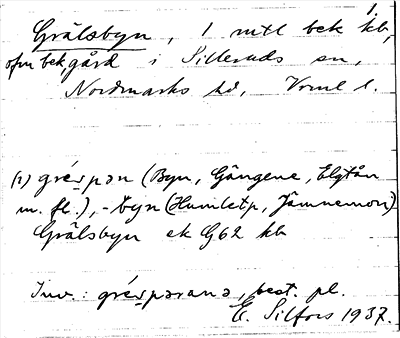 1.
Grälsbyn, 1 mtl bek kb,
ofm bek, gård i Silleruds sn,
Nordmarks hd, Vrml l.
(1) gré̱spən (Byn, Gångene, Elgtån
m. fl.), -byn (Humletp, Jämnemon)
Grälsbyn ek G62 kb
Inv.: gré̱spərana, best. pl.
E. Silfors 1937.